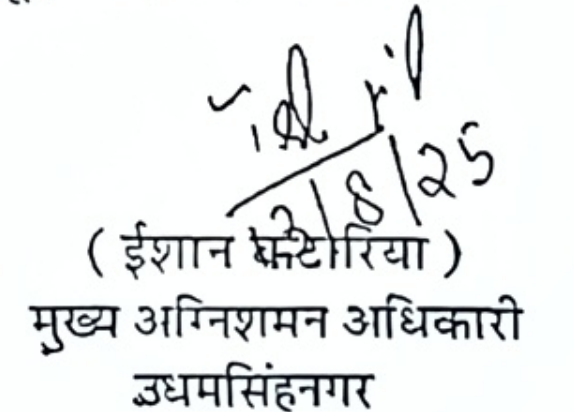 /8/25
( ईशान कटारिया )
मुख्य अग्निशमन अधिकारी
उधमसिंहनगर